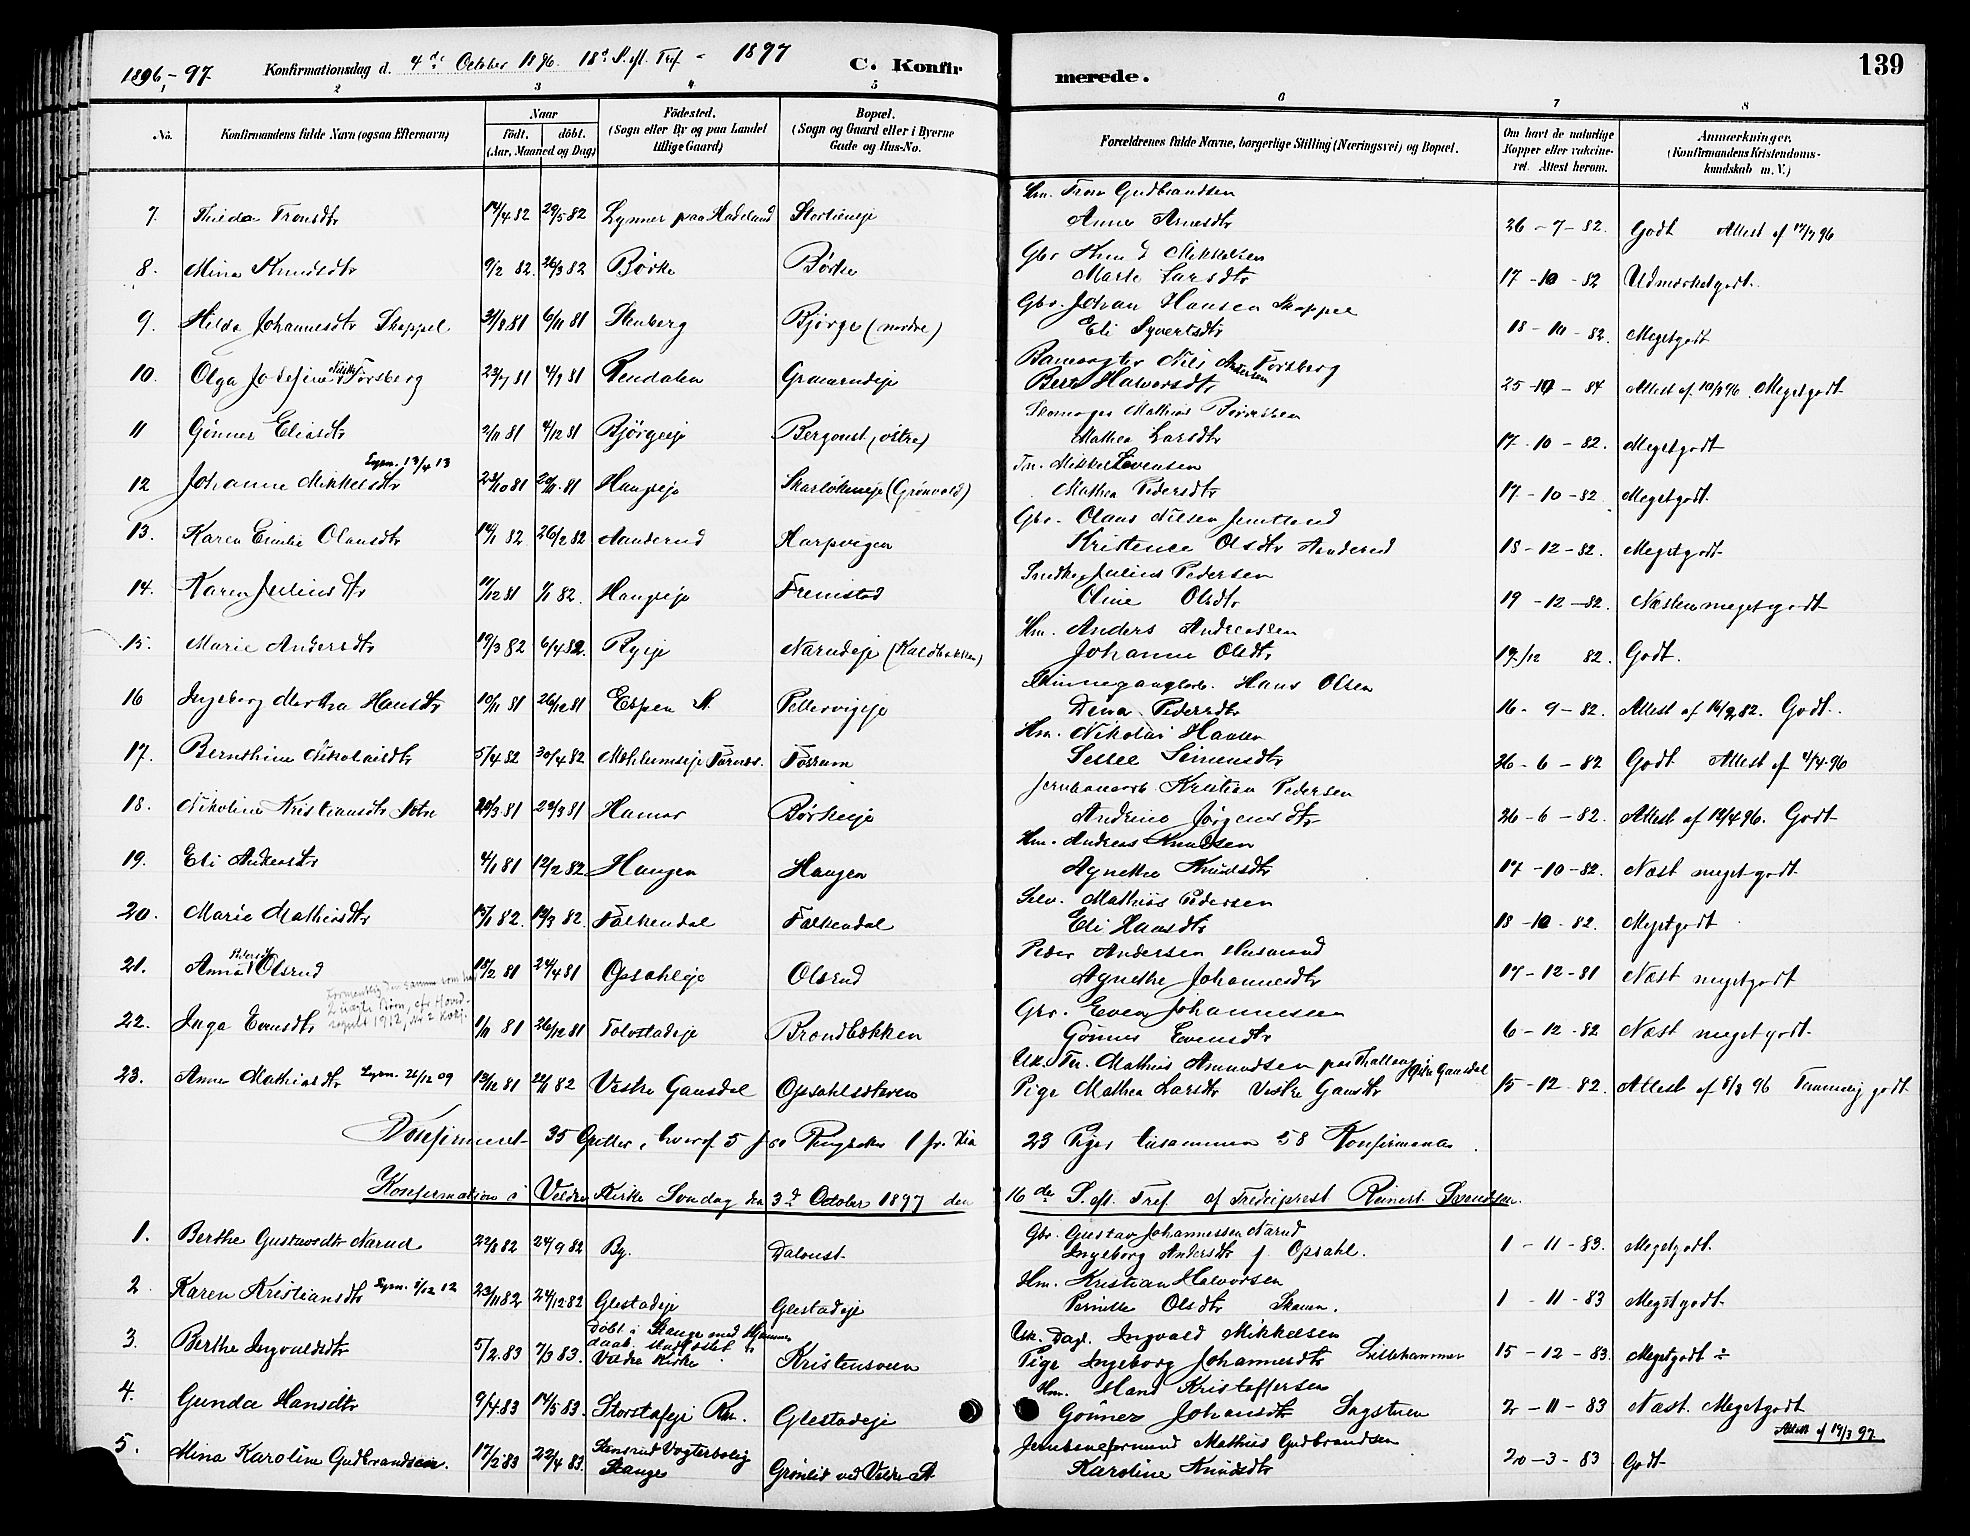 1896-97 Konfirmationsdag d. 4de October 1896. 18d S. ef. Tref - 1897 C. Konfirmerede. 139
2 3 4 5 6 7 8
No. Konfirmandens fulde Navn (ogsaa Efternavn) Naar födt. döbt. (Aar, Maaned og Dag) Födested. (Sogn eller By og paa Landet tillige Gaard) Bopæl. (Sogn og Gaard eller i Byerne Gade og Hus-No. Forældrenes fulde Navne, borgerlige Stilling (Næringsvei) og Bopæl. Om havt de naturlige Kopper eller vakcineret. Attest herom. Anmærkninger. (Konfirmandens Kristendomskundskab m. V.)
7. Thilda Tronsdtr 29/5 82 Lynner paa Hadeland Hm. Tron Gudbrandsen
Anne Arnesdtr 26-7-82. Godt Attest af 17/7 96
8. Mina Knudsdtr 9/2 82. 26/3 82 Börke Börke Gbr Knud Mikkelsen
Marte Larsdtr 17-10-82 Udmærket godt.
9. Hilda Johannesdtr Skappel 3/8 81 6/11 81 Stenberg Bjørge (nordre) Gbr. Johan Hansen Skappel
Eli Syvertsdtr 18-10-82. Meget godt
10. Olga Josefine Nilsdtr Forsberg 23/7 81 4/9 81 Rendalen Banevogter Nils Andersen Forsberg
Halvorsdtr 25-10-84 Attest af 10/9 96. Meget godt
11 Gønner Eliasdtr 2/11 81 4/12 81 Bjørgeeje Bergoust (østre) Skomager Mathias
Mathea Larsdtr 17-10-82. Meget godt
12 Johanne Mikkelsdtr Lysn. 13/4 13 23/10 81 20/11 81 Haugseje Skarløkseeje (Grønvold) Tm. Mikkel Evensen
Mathea Pedersdtr 17-10-82 Meget godt.
13. Karen Emilie Olausdtr 14/1 82 26/2 82 Aanderud Harpvigen Gbr. Olaus Nilsen Jemtland
Kristence Olsdtr Aanderud 18-12-82. Meget godt
14. Karen Juliusdtr 11/12 81 1/1 82. Haugseje Fremstad Snedker Julius Pedersen
Oline Olsdtr 19-12-82. Næsten meget godt
15. Marie Andersdtr 19/3 82 6/4 82. Byeje Narudeje (Kaldbækken) Hm. Anders Andreassen
Johanne Olsdtr 19/12 82. Godt.
16 Ingeborg Martha Hansdtr 10/11 81 26/12 81 Espen St. Pellervigeje Hans Olsen
Dina Pedersdtr 16-9-82. Attest af 16/9 82. Godt.
17. Bernthine Nikolaisdtr 5/4 82 30/4 82 Mæhlumseje Furnes. Fossum Hm. Nikolai Hansen
Sessel Simensdtr 26-6-82 Godt Attest af 4/4-96
18. Nikoline Kristiansdtr 20/3 81 Hamar Børkeeje Jernbanearb Kristian Pedersen
Andrine Jørgensdtr 26-6-82. Attest af 12/4 96. Godt
19. Eli Andreasdtr 4/11 81 12/2 82. Haugen Haugen Hm. Andreas Knudsen
Agnethe Knudsdtr 17-10-82. Næst meget godt
20. Marie Mathiasdtr 15/1 82. 19/3 82 Falkendal Falkendal Selv. Mathias Pedersen
Eli Hansdtr 18-10-82. Meget godt
21. Anna Pedersdtr Olsrud 18/2 81 24/4 81 Opsahleje Olsrud Peder Andersen
Agnethe Johannesdtr 17-12-81 Næst meget godt
22. Inga Evensdtr 1/11 81 26/12 81 Tolvstadeje Brændbækken Gbr. Even Johannessen
Gønner Evensdtr 6-12-82 Næst meget godt.
23. Anne Mathiasdtr Lysn. 26/12 09 13/12 81 22/1 82 Vestre Gausdal Opsahlsdteren Uk. Tm. Mathias Amundsen paa Østre Gausdal
Pige Mathea Larsdtr Vestre Gausdtr 15-12-82. Attest af 8/3 96 Temmelig godt
Konfirmeret 35 Gutter, hvoraf 5 fra Ringsaker 1 fr. 23 Piger tilsammen 58 Konfirmander.
Konfirmation i Veldre Kirke Søndag den 3d October 1897 den 16de S. ef. Tref. af
1. Berthe Gustavsdtr Narud 22/8 82 24/9 82 By. Daloust. Gbr. Gustav Johannessen Narud
Ingeborg Andersdtr f Opsahl. 1-11-83. Meget godt.
2 Karen Kristiansdtr Lysn. 8/12 12 23/11 82 24/12 82 Glestadeje Glestadeje Hm. Kristian Halvorsen
Pernille Olsdtr 1-11-83 Meget godt
3. Berthe Ingvaldsdtr 5/2 83 7/3 83. Døbt i Stange med Hjemmedaab, stadfæstet i Veldre Kirke Kristensveen Uk. Dagl. Ingvald Mikkelsen
Pige Ingeborg Johannesdtr Lillehammer 15-12-83. Meget godt ÷
4. Gunda Hansdtr 9/4 83 14/5 83. Storstafeje Rm. Glestadeje Hm. Hans Kristoffersen
Gönner Johansdtr 2-11-83 Næst Meget godt
5. Mina Karoline Gudbrandsen. 17/2 83 22/4 83. Stensrud Vogterbolig Stange Grønlid ved Veldre St Jernbaneformand Mathias Gudbrandsen
Karoline Knudsdtr 20-3-83 Godt Attest af 19/3 97